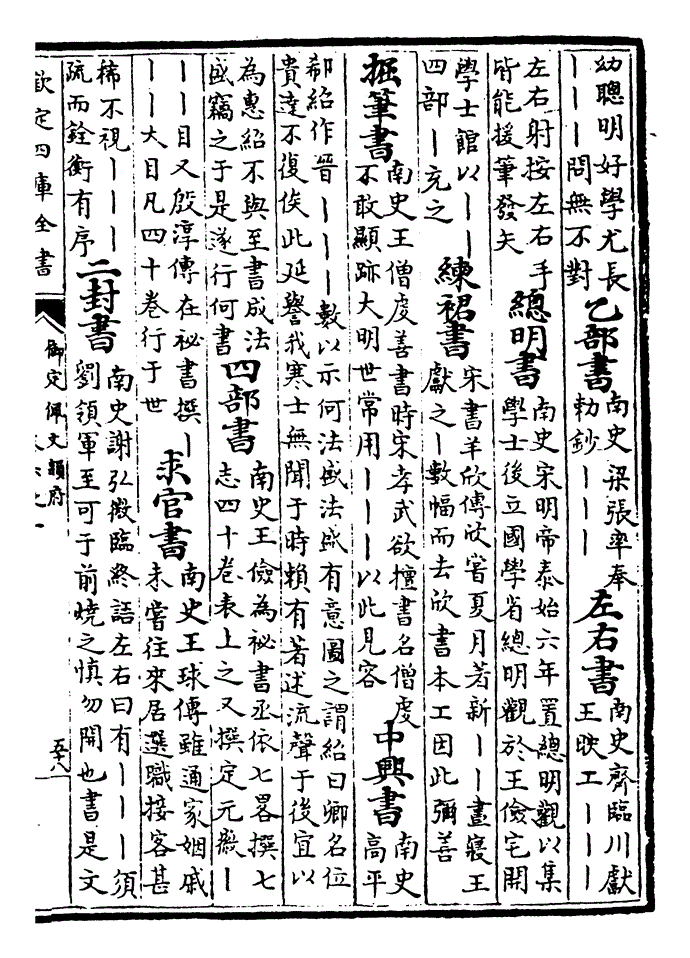 幼聰明好學尤長
｜｜｜問無不對
乙部書
南史梁張率奉
勑鈔｜｜｜
左右書
南史齊臨川獻
王映工｜｜｜
左右射按左右手
皆能援筆發矢
總明書
南史宋明帝泰始六年置總明觀以集
學士後立國學省總明觀於王儉宅開
學士館以｜｜
四部｜充之
練裙書
宋書羊欣傳欣嘗夏月若新｜｜晝寢王
獻之｜數幅而去欣書本工因此彌善
掘筆書
南史王僧虔善書時宋孝武欲擅書名僧虔
不敢顯跡大明世常用｜｜｜以此見容
中興書
南史
高平
郗紹作晉｜｜｜數以示何法盛法盛有意圖之謂紹曰卿名位
貴達不復俟此延譽我寒士無聞于時賴有著述流聲于後宜以
為惠紹不與至書成法
盛竊之于是遂行何書
四部書
南史王儉為祕書丞依七畧撰七
志四十卷表上之又撰定元徽｜
｜｜目又殷淳傳在祕書撰｜
｜｜大目凡四十卷行于世
求官書
南史王球傳雖通家姻戚
未嘗往來居選職接客甚
稀不視｜｜｜
疏而銓衡有序
二封書
南史謝弘微臨終語左右曰有｜｜｜須
劉領軍至可于前燒之慎勿開也書是文
欽定四庫全書
御定佩文韻府
五十八